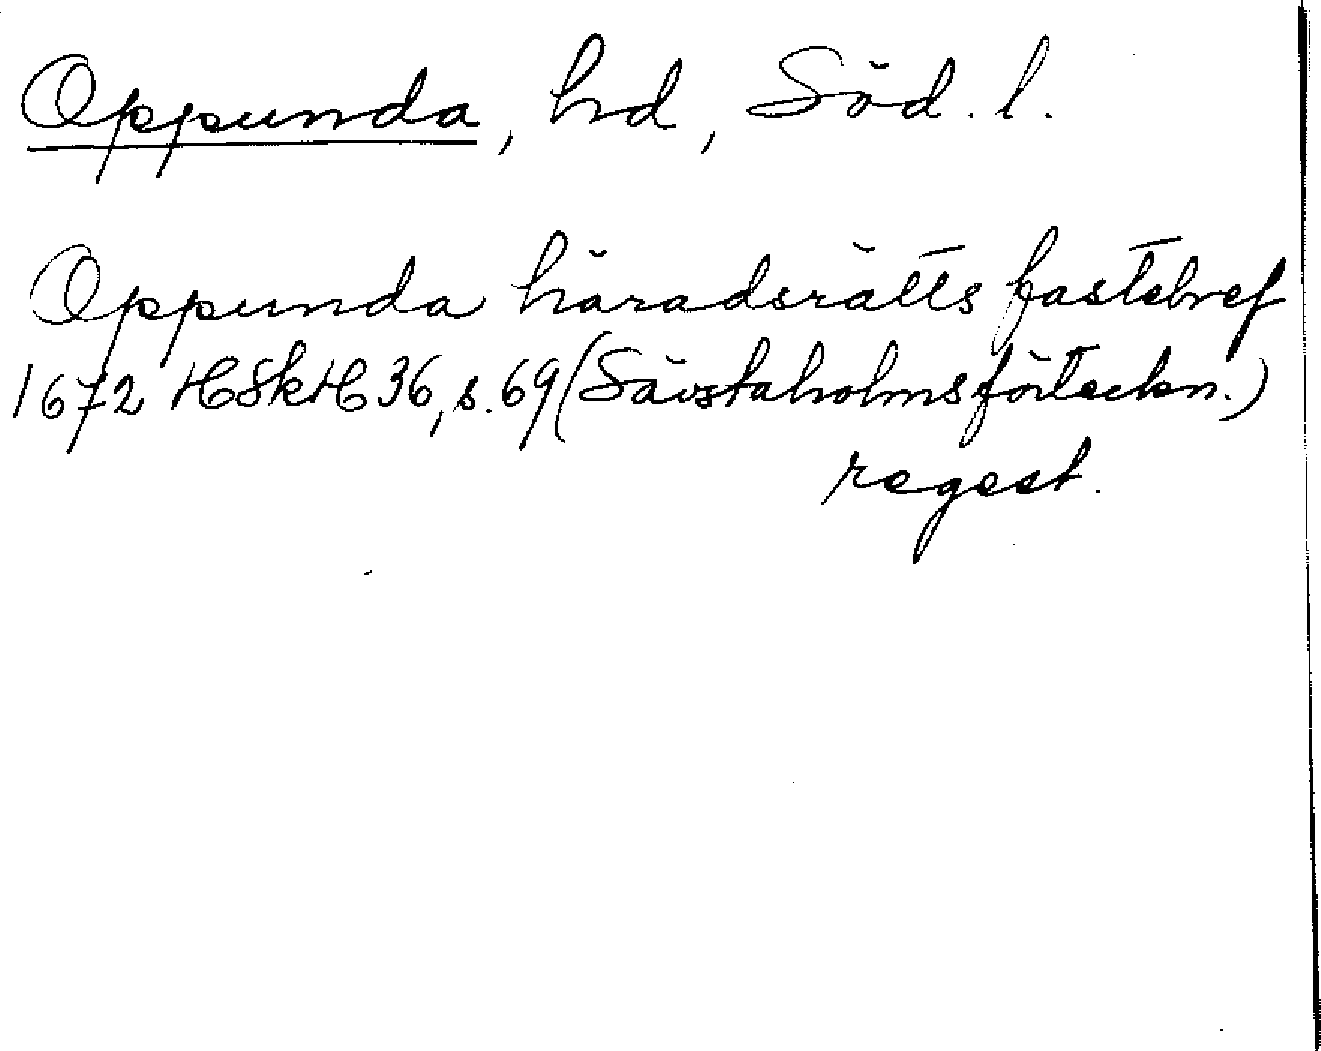 Oppunda, hd, Söd. l.
Oppunda häradsrätts fastebref
1672 HSkH 36, s. 69 (Sävstaholmsförteckn.)
regest.